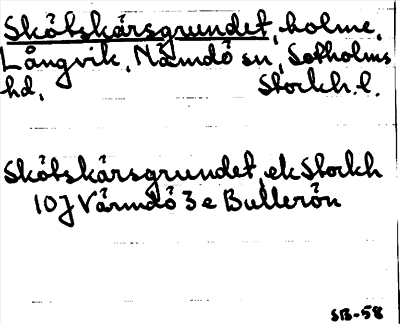 Skötskärsgrundet, holme,
Långvik, Nämdö sn, Sotholms
hd, Stockh. l.
Skötskärsgrundet, ek Stockh
10J Värmdö 3 e Bullerön
SB-58